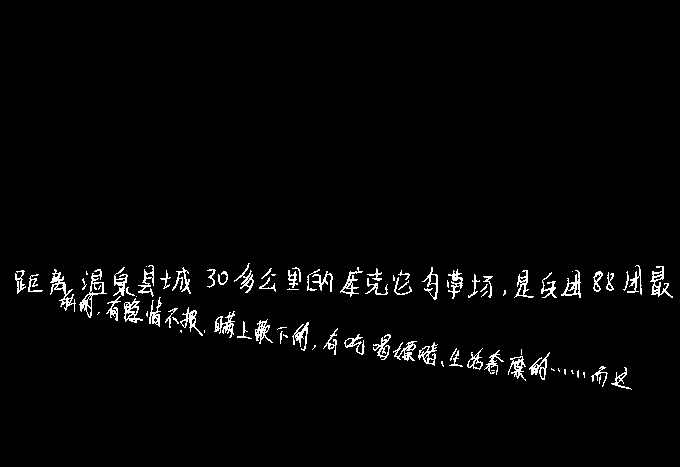 距离温泉县城30多公里的库克它乌草场,是兵团88团最
私的,有隐情不报、瞒上欺下的,有吃喝嫖赌、生活奢糜的……而这